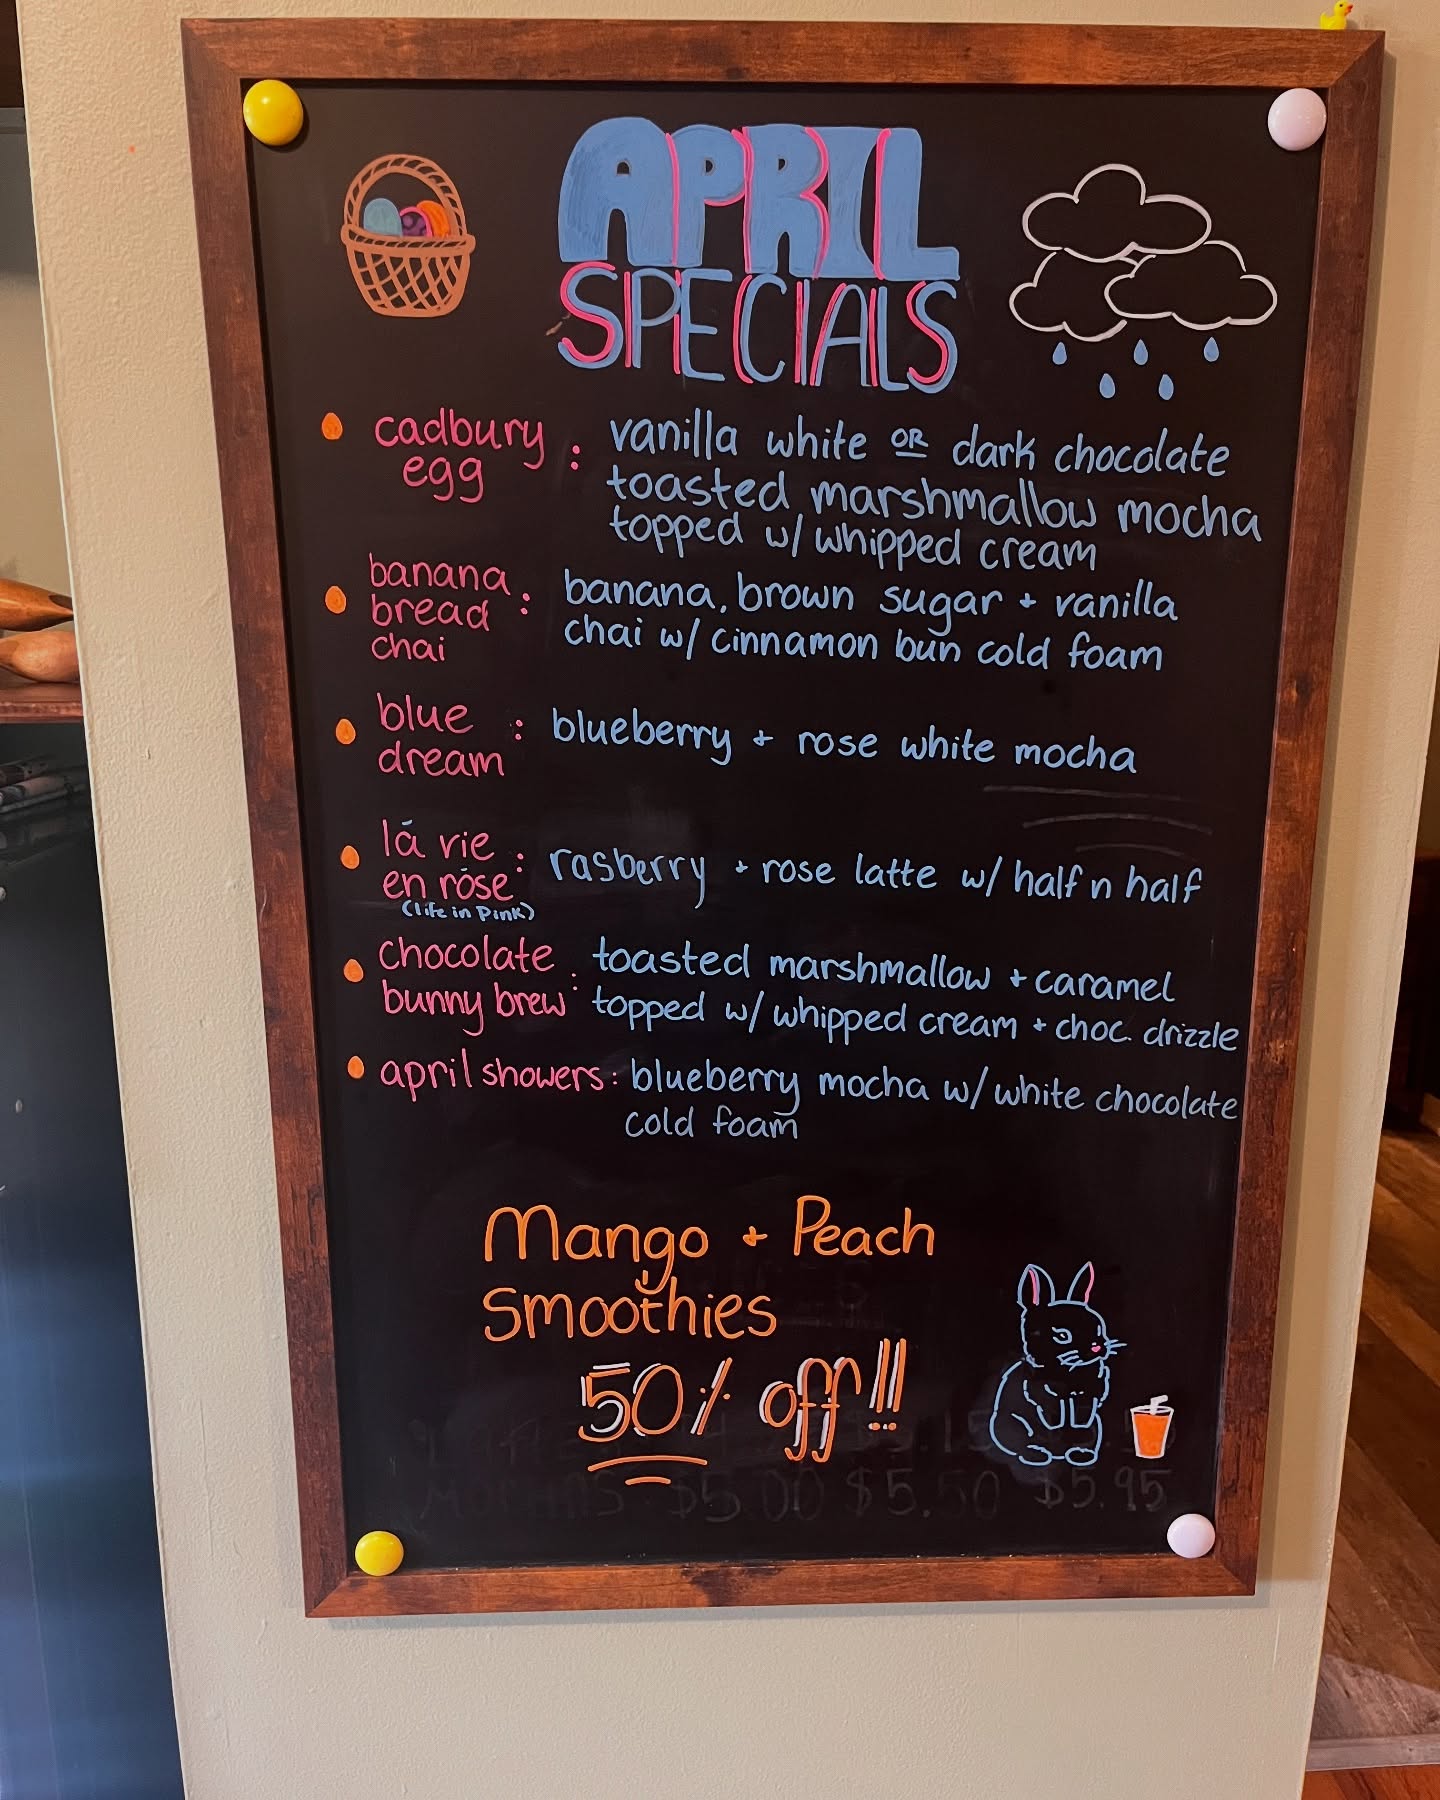 APRIL
SPECIALS
cadbury egg : vanilla white OR dark chocolate
toasted marshmallow mocha
topped w/ whipped cream
banana bread chai : banana, brown sugar + vanilla
chai w/ cinnamon bun cold foam
blue dream : blueberry + rose white mocha
lá vie en róse : rasberry + rose latte w/ half n half
(life in pink)
chocolate bunny brew : toasted marshmallow + caramel
topped w/ whipped cream + choc. drizzle
april showers : blueberry mocha w/ white chocolate
cold foam
Mango + Peach
Smoothies
50% off!!!
MOCHAS $5.00 $5.50 $5.95